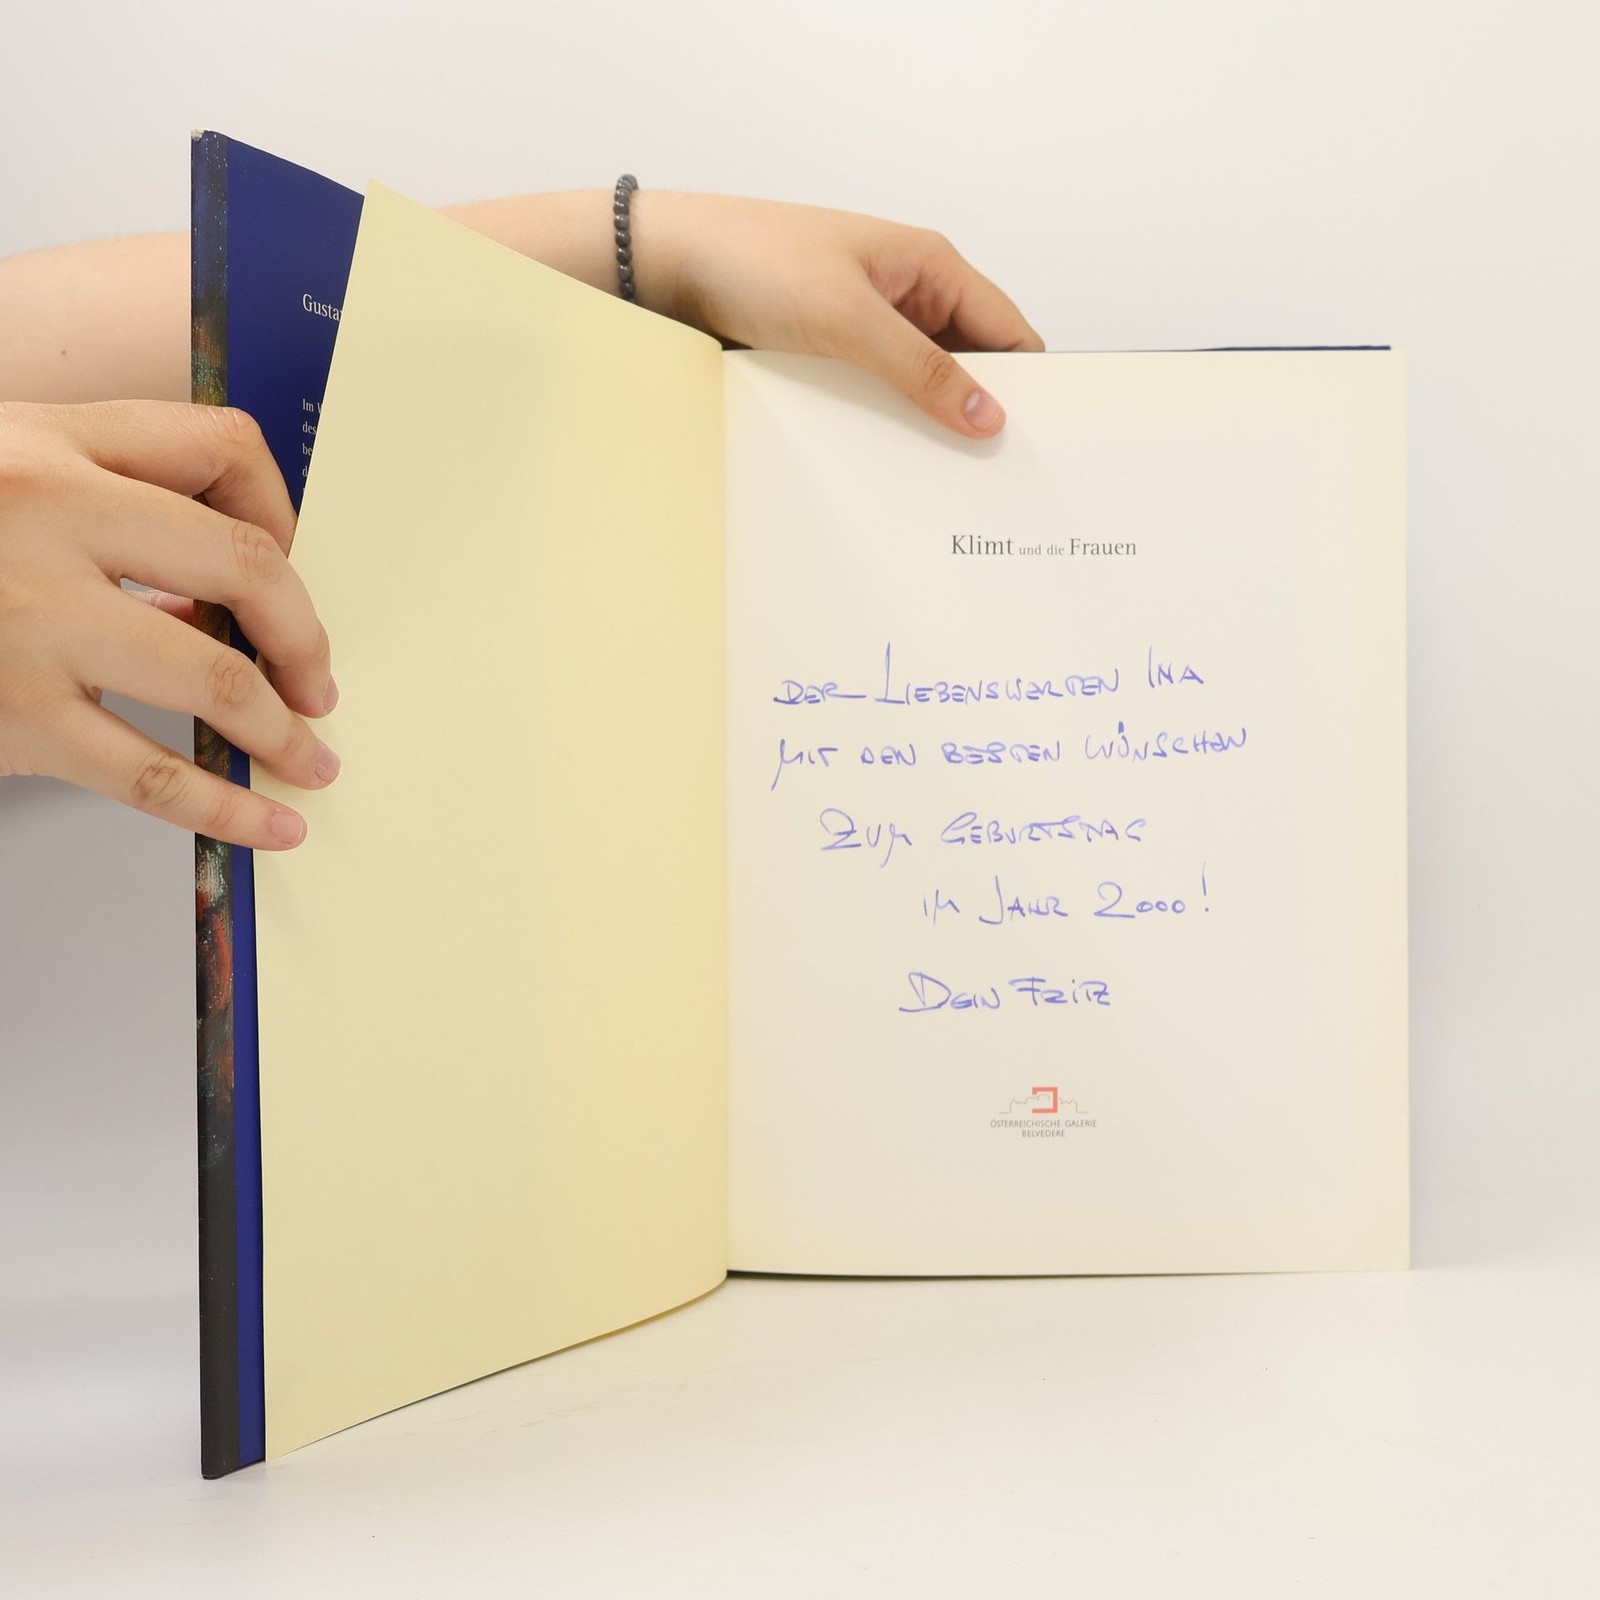 Gusta
Im W
des
be
d
Klimt und die Frauen
DER LIEBENSWERTEN INA
MIT DEN BESTEN WÜNSCHEN
ZUM GEBURTSTAG
IM JAHR 2000!
DEIN FRITZ
ÖSTERREICHISCHE GALERIE
BELVEDERE